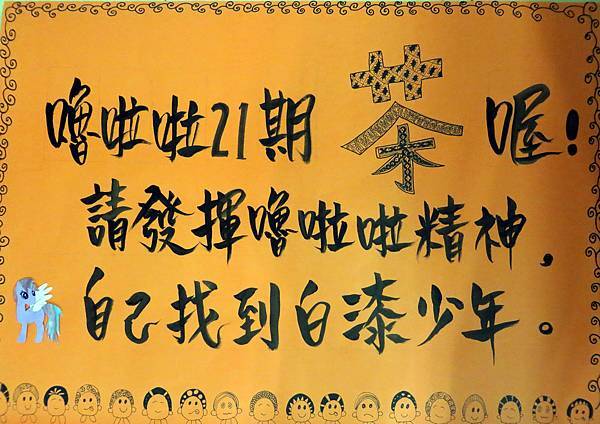 嚕啦啦21期 茶 喔!
請發揮嚕啦啦精神,
自己找到白漆少年。